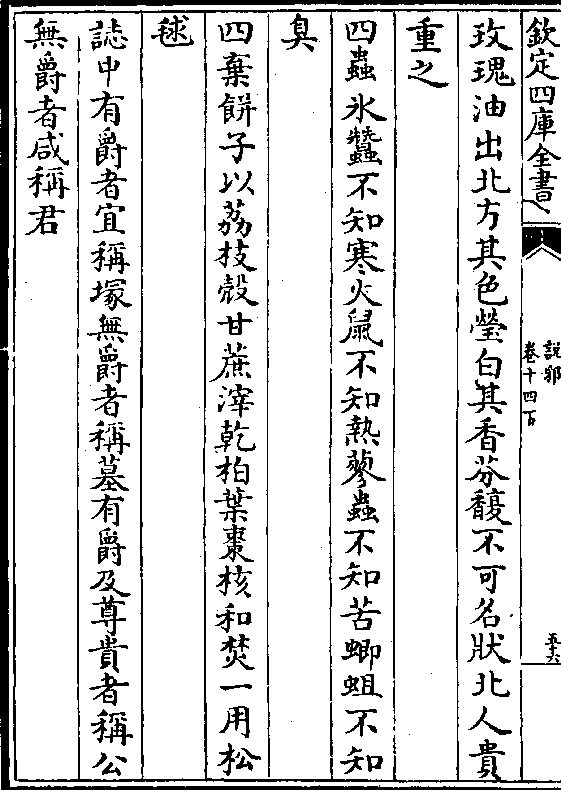 欽定四庫全書
說郛
卷十四百
五十六
玫瑰油出北方其色瑩白其香芬馥不可名狀北人貴
重之
四蟲氷蠶不知寒火鼠不知熱蓼蟲不知苦蝍蛆不知
臭
四棄餅子以荔枝殻甘蔗滓乾柏葉棗核和焚一用松
毬
誌中有爵者宜稱塚無爵者稱墓有爵及尊貴者稱公
無爵者咸稱君